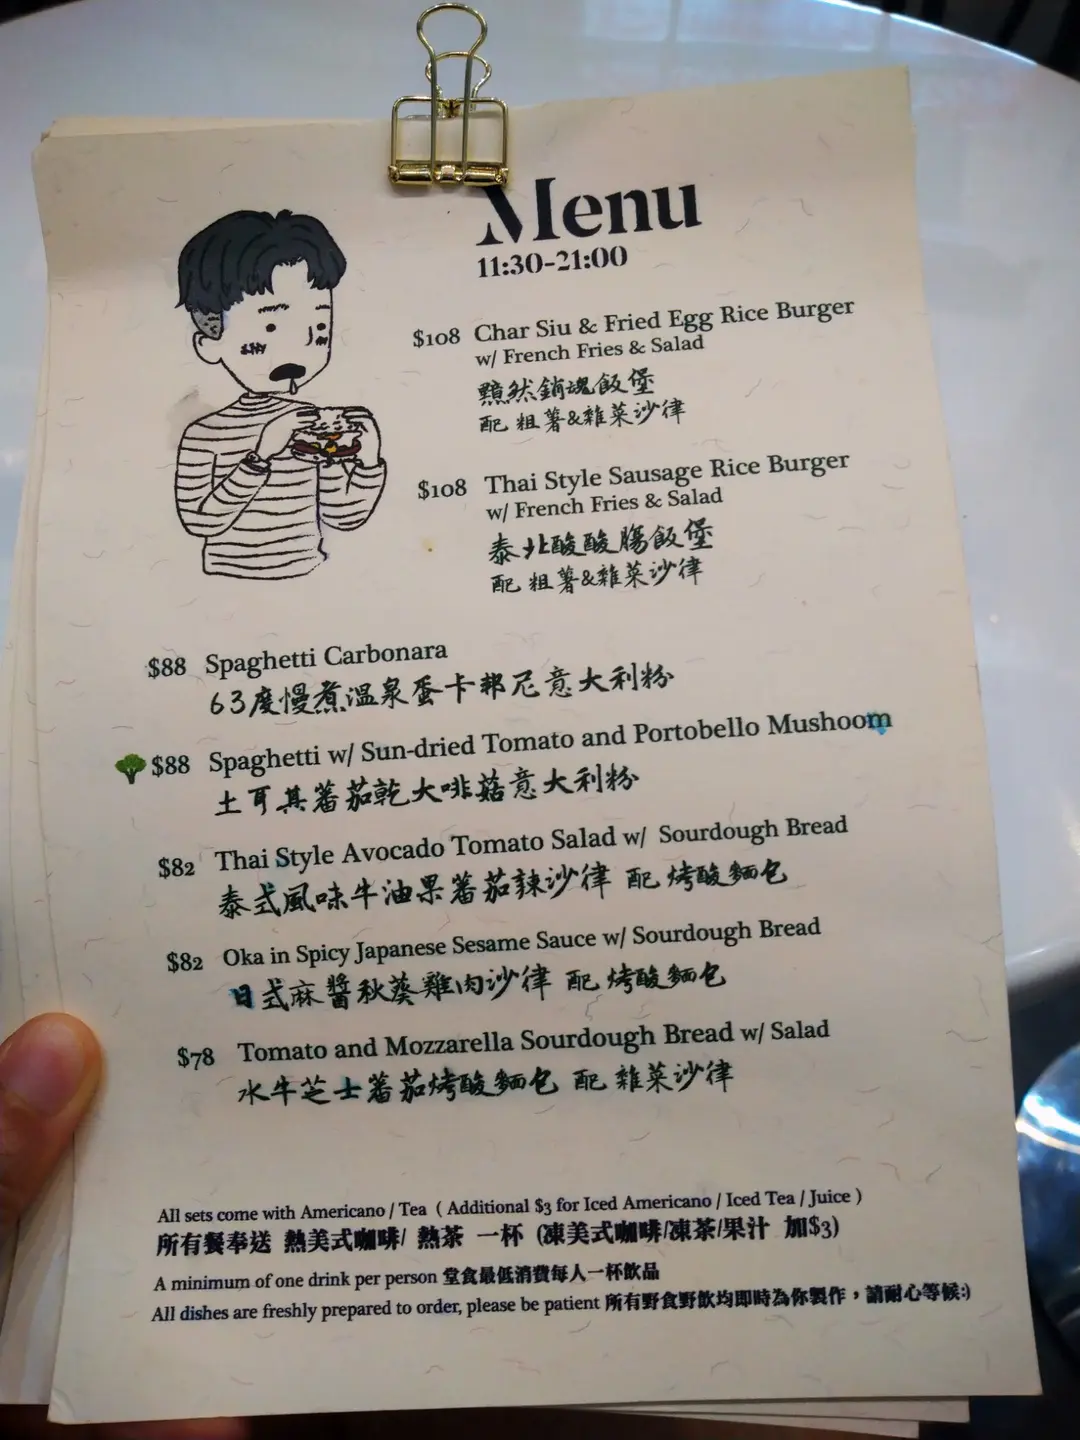 Menu
11:30-21:00
$108 Char Siu & Fried Egg Rice Burger
w/ French Fries & Salad
黯然銷魂飯堡
配 粗薯&雜菜沙律
$108 Thai Style Sausage Rice Burger
w/ French Fries & Salad
泰北酸酸腸飯堡
配 粗薯&雜菜沙律
$88 Spaghetti Carbonara
63度慢煮溫泉蛋卡邦尼意大利粉
$88 Spaghetti w/ Sun-dried Tomato and Portobello Mushoom
土耳其蕃茄乾大啡菇意大利粉
$82 Thai Style Avocado Tomato Salad w/ Sourdough Bread
泰式風味牛油果蕃茄辣沙律 配 烤酸麵包
$82 Oka in Spicy Japanese Sesame Sauce w/ Sourdough Bread
日式麻醬秋葵雞肉沙律 配 烤酸麵包
$78 Tomato and Mozzarella Sourdough Bread w/ Salad
水牛芝士蕃茄烤酸麵包 配 雜菜沙律
All sets come with Americano / Tea ( Additional $3 for Iced Americano / Iced Tea / Juice )
所有餐奉送 熱美式咖啡/ 熱茶 一杯 (凍美式咖啡/凍茶/果汁 加$3)
A minimum of one drink per person 堂食最低消費每人一杯飲品
All dishes are freshly prepared to order, please be patient 所有野食野飲均即時為你製作，請耐心等候:)